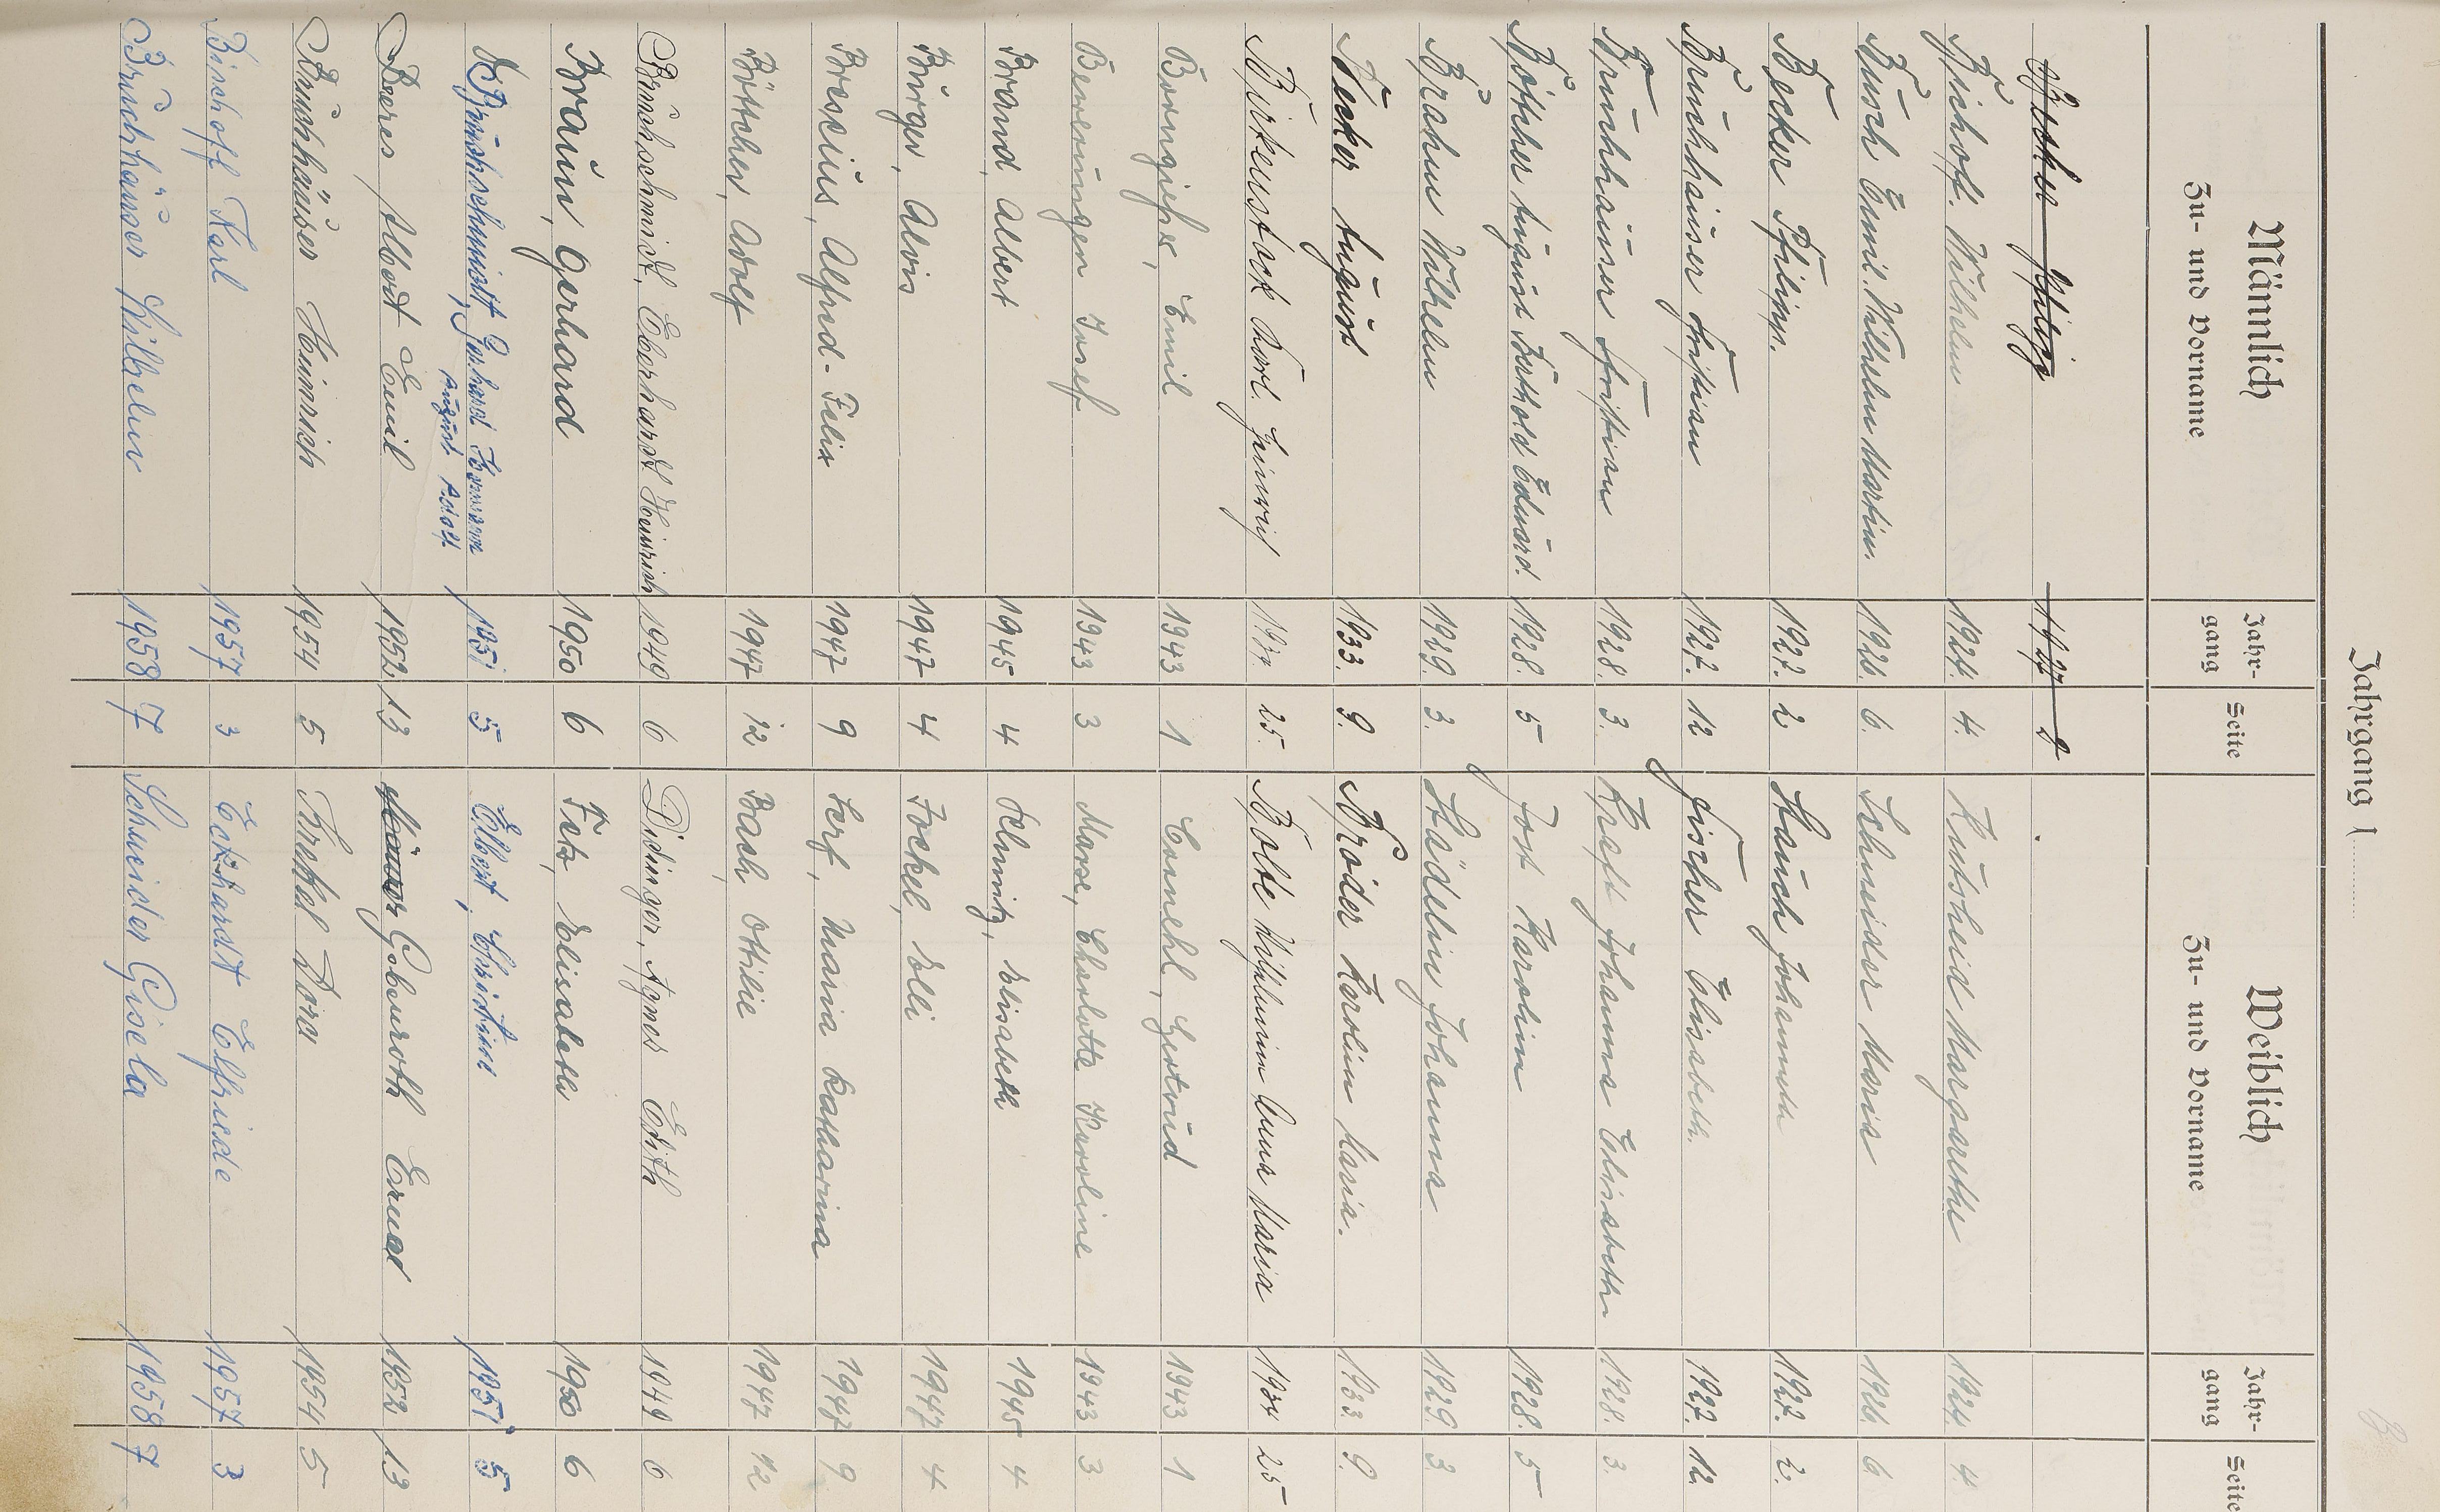 Jahrgang 1
Männlich Weiblich
Zu- und Vorname Jahrgang Seite Zu- und Vorname Jahrgang Seite
1927
Bischoff. Wilhelm 1924. 4. Hutscheid Margarethe 1924. 4.
Busch Emil. Wilhelm Martin. 1926. 6. Schneider Maria 1926. 6.
Becker Philipp. 1927. 2. Hauch Johannette 1927. 2.
Bruchhäuser Christian 1927. 12 Fischer Elisabeth. 1927. 12.
Bruchhäuser Christian 1928. 3. Kraft Johanna Elisabeth 1928. 3.
Böttcher August Berthold Eduard. 1928. 5 Jost Karoline 1928. 5
Brahm Wilhelm 1929. 3. Städelin Johanna 1929. 3
Becker August 1933. 9. Bröder Karoline Maria. 1933. 9.
Birkenstock Karl. Heinrich 1934. 25. Bolte Wilhelmine Anna Maria 1934 25
Emil 1943 1 Cornehl, Gertrud 1943 1
Beverungen Josef 1943 3 Marx, Charlotte Karoline 1943 3
Brand, Albert 1945 4 Elisabeth 1945 4
Bürger, Alois 1947 4 Jockel, Elli 1947 4
Brescius, Alfred-Felix 1947 9 Serf, Maria Katharina 1947 9
Böttcher, Adolf 1947 12 Bach, Ottilie 1947 12
Bruchschmidt, Eberhardt Heinrich 1949 6 Didinger, Agnes Edith 1949 6
Braun, Gerhard 1950 6 Fetz, Elisabeth 1950 6
Bruchschmidt, Gerhard Hermann 1951 5 Elbert, Christine 1951 5
August Adolf
Beres Albert Emil 1952 13 Gobenroth Erna 1952 13
Bruchhäuser Heinrich 1954 5 Dora 1954 5
Bischoff Karl 1957 3 Eckhardt Elfriede 1957 3
Bruchhäuser Wilhelm 1958 7 Schneider Gisela 1958 7